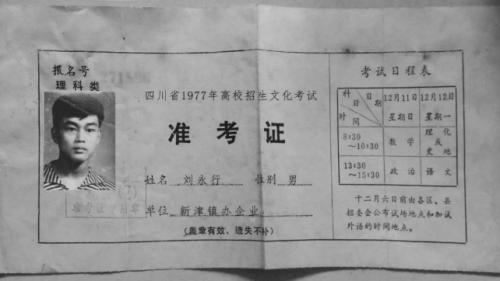 报名号
理科类
四川省1977年高校招生文化考试
准考证
姓名 刘永行 性别 男
单位 新津镇办企业
(盖章有效、遗失不补)
考试日程表
科目 日期 时间 12月11日 星期日 12月12日 星期一
8:30～10:30 数学 理化或史地
13:30～15:30 政治 语文
十二月六日前由各区、县
招委会公布试场地点和加试
外语的时间地点。